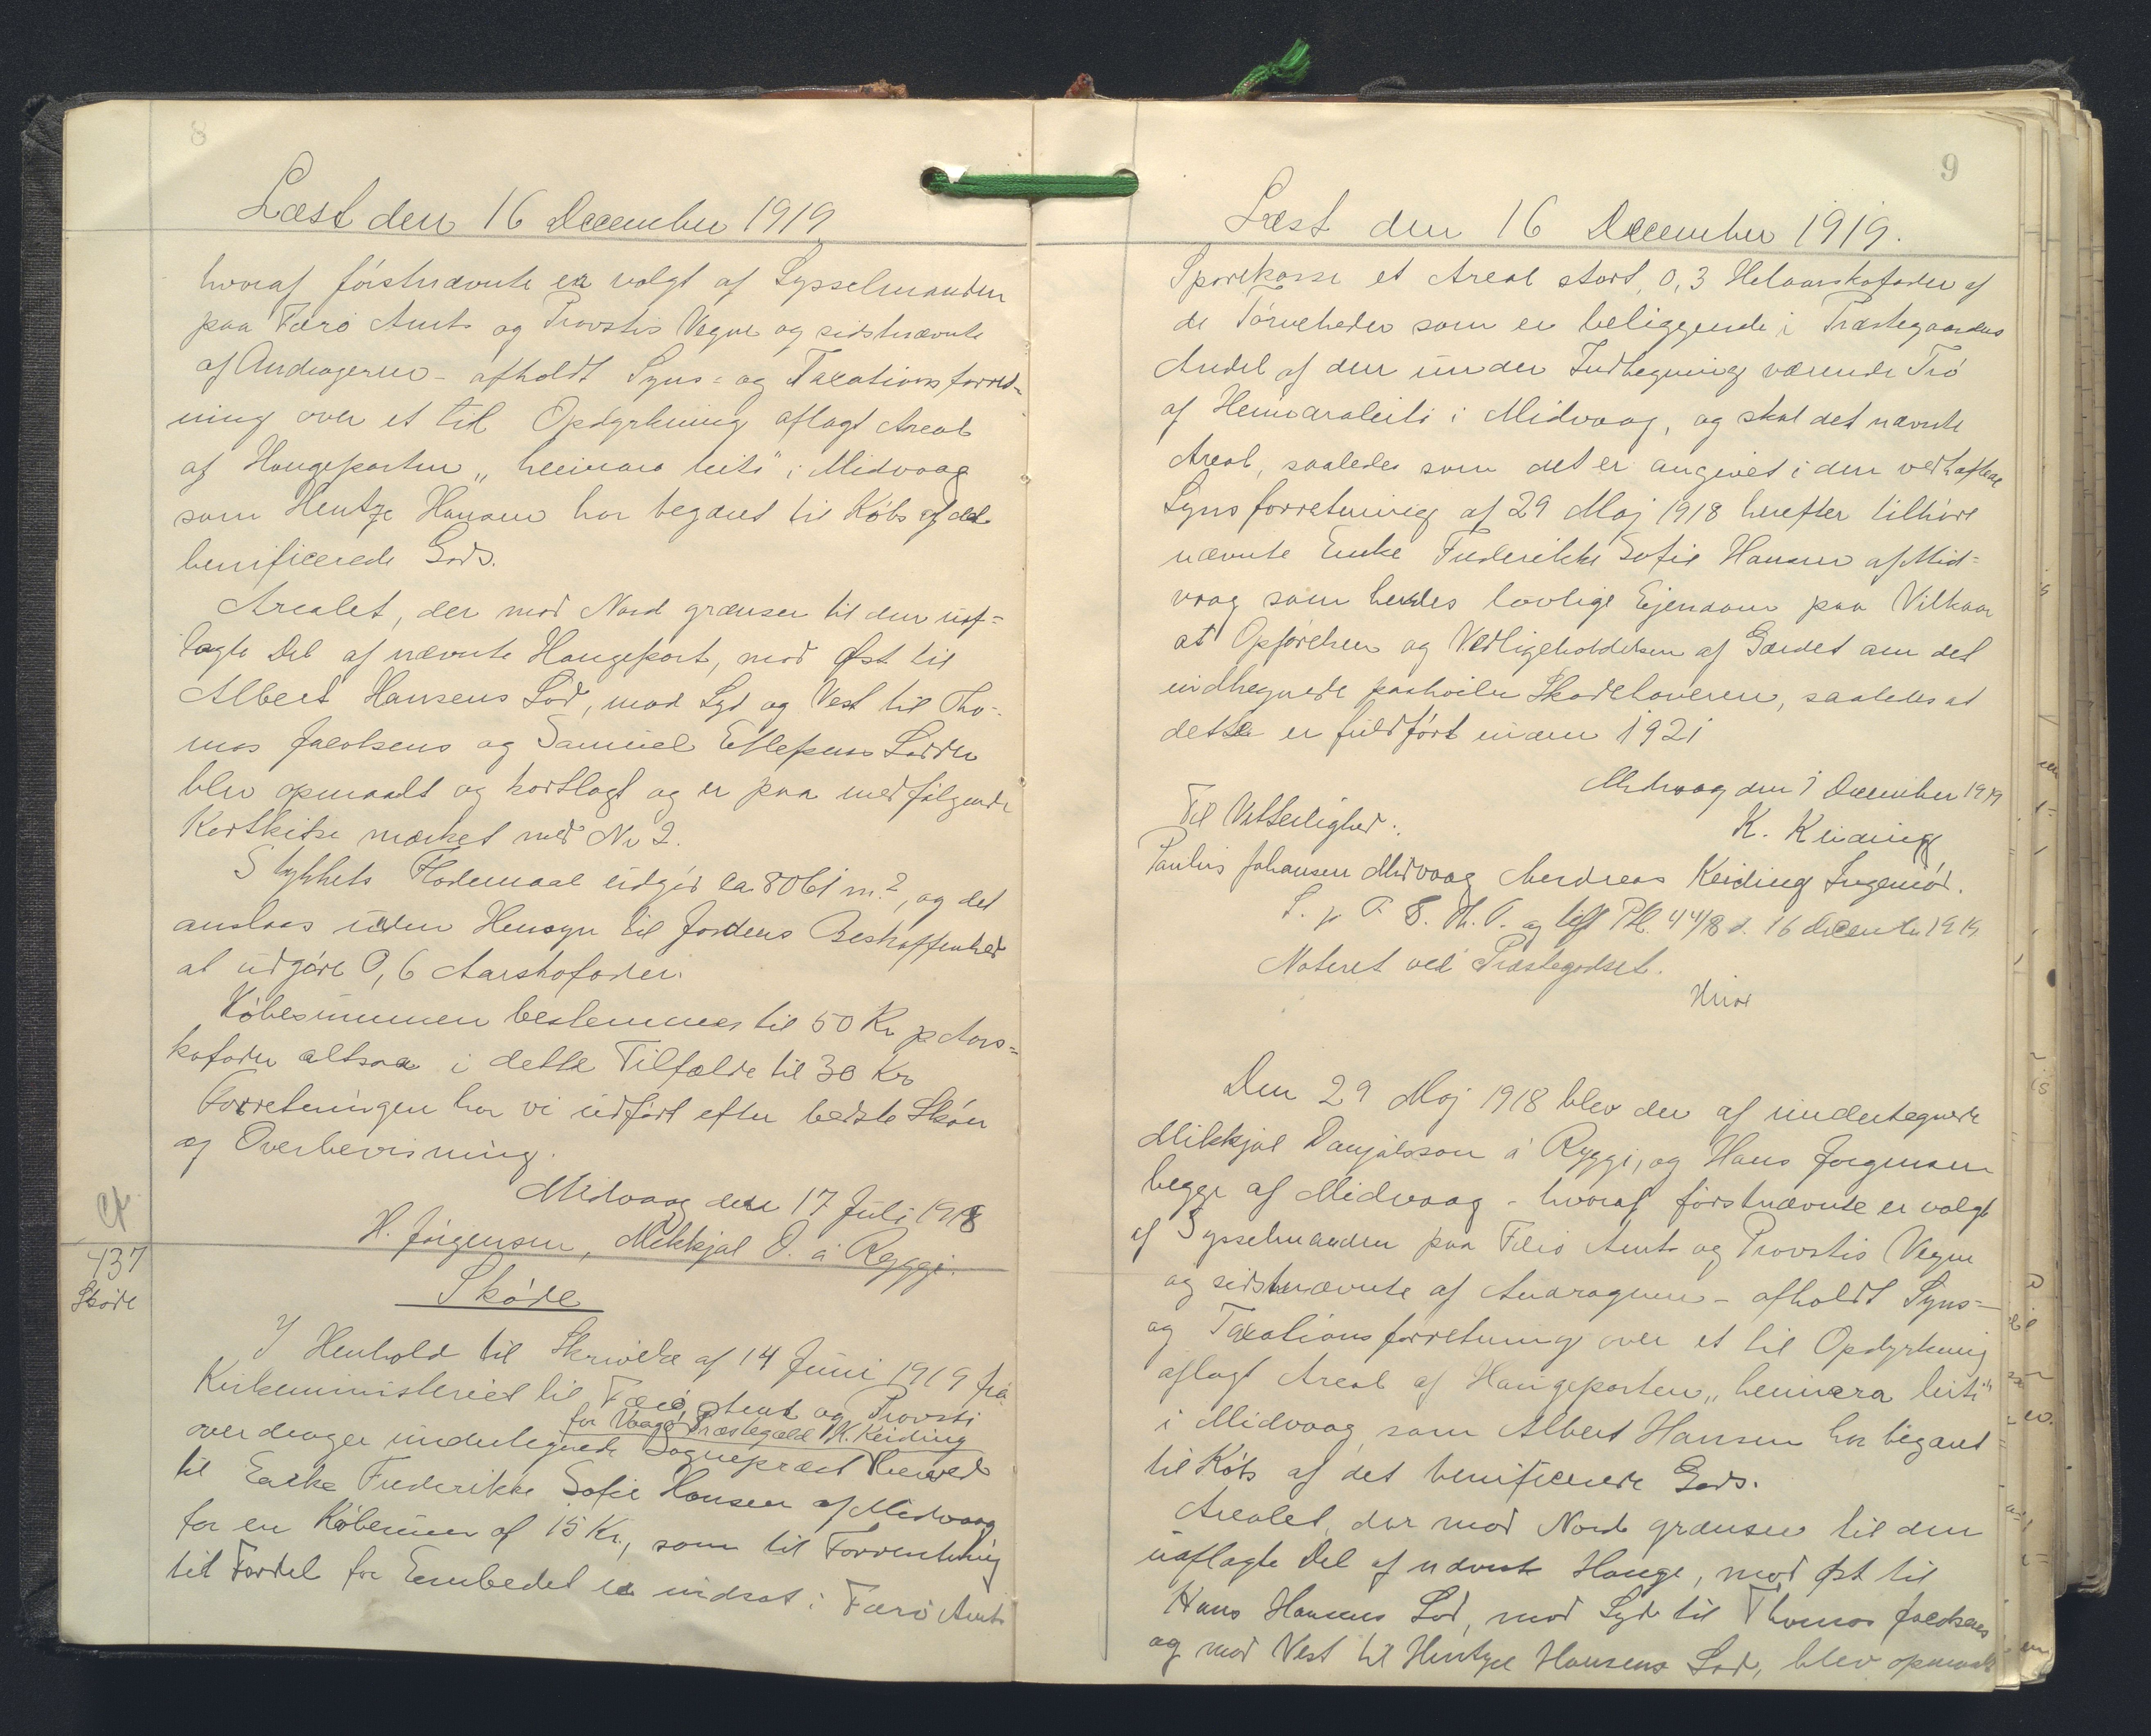 8
Læst den 16 December 1919
hvoraf förstnævnte er valgt af Sysselmanden
paa Færö Amts og Provstis Vegne og sidstnævnte
af Andrageren - afholdt Syns= og Taxationsforret-
ning over et til Opdyrkning aflagt Areal
af Haugeparten „heimara leiti" i Midvaag
som Hentze Hansen har begæret til Köbs af det
benificerede Gods.
Arealet, der mod Nord grænser til den uaf=
lagte Del af nævnte Haugepart, mod Øst til
Albert Hansens Lod, mod Syd og Vest til Tho-
mas Jacobsens og Samuel Ellefsens Lodder
blev opmaalt og kortlagt og er paa medfölgende
Kortskitse mærket med No 2.
Stykkets Flademaal udgör ca 8061 m², og det
anslaas uden Hensyn til Jordens Beskaffenhed
at udgöre 0,6 Aarskofoder.
Köbesummen bestemmes til 50 Kr p Aars=
kofoder altsaa i dette Tilfælde til 30 Kr
Forretningen har vi udfört efter bedste Skön
og Overbevisning.
Midvaag den 17 Juli 1918
H. Jörgensen, Mikkjal D. á Ryggi.
437
Sköde
Sköde
I Henhold til Skrivelse af 14 Juni 1919 fra
Kirkeministeriet til Færö Amt og Provsti
for Vaagö Præstegæld K. Keiding
overdrager undertegnede Sognepræst herved
til Enke Frederikke Sofie Hansen af Midvaag
for en Köbesum af 15 Kr., som til Forrentning
til Fordel for Embedet er indsat i Færö Amts
9
Læst den 16 December 1919.
Sparekasse et Areal stort 0,3 Helaarskofoder af
de Törveheder som er beliggende i Præstegaardens
Andel af den under Indhegning værende Trö
af Heimaraleiti i Midvaag, og skal det nævnte
Areal, saaledes som det er angivet i den vedhæftede
Synsforretning af 29 Maj 1918 herefter tilhöre
nævnte Enke Frederikke Sofie Hansen af Mid=
vaag som hendes lovlige Ejendom paa Vilkaar
at Opförelsen og Vedligeholdelsen af Gærdet om det
indhegnede paahviler Sködehaveren, saaledes at
dette er fuldfört inden 1921
Midvaag den 1 December 1919
K. Keiding
Til Vitterlighed:
Paulus Johansen Midvaag Andreas Keiding Ingeniör.
44/18 d. 16 December 1919
Noteret ved Præstegodset.
Den 29 Maj 1918 blev der af undertegnede
Mikkjal Danjálsson á Ryggi, og Hans Jörgensen
begge af Midvaag - hvoraf förstnævnte er valgt
af Sysselmanden paa Færö Amts og Provstis Vegne
og sidstnævnte af Andrageren - afholdt Syns=
og Taxationsforretning over et til Opdyrkning
aflagt Areal af Haugeparten „heimara leiti"
i Midvaag som Albert Hansen har begæret
til Köbs af det benificerede Gods.
Arealet, der mod Nord grænser til den
uaflagte Del af nævnte Hauge, mod Øst til
Hans Hansens Lod, mod Syd til Thomas Jacobsens
og mod Vest til Hentze Hansens Lod, blev opmaalt